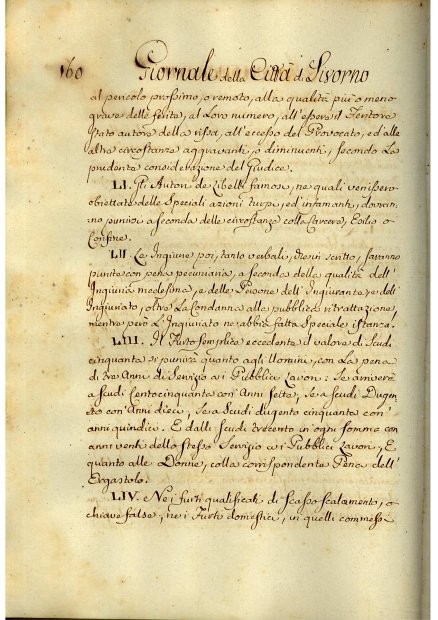 160 Giornale della Città di Livorno
al pericolo prossimo, o remoto, alla qualità più o meno
grave delle ferite, al Loro numero, all'essere il Feritore
stato autore della rissa, all'eccesso del Provocato, ed alle
altre circostanze aggravanti o diminuenti, secondo La
prudente considerazione del Giudice.
LI. Gli Autori de Libelli famosi, ne quali venissero
obiettate delle Speciali azioni turpi, ed infamanti, dovran
no punirsi a seconda delle circostanze colla Carcere, Esilio o
Confine.
LII. Le Ingiurie poi, tanto verbali, che in scritto, saranno
punite con pena pecuniaria, a seconda della qualità dell'
Ingiuria medesima, e delle Persone dell'Ingiurante, e dell'
Ingiuriato, oltre La Condanna alla pubblica ritrattazione,
mentre però L'Ingiuriato ne abbia fatta Speciale istanza.
LIII. Il Furto semplice eccedente il valore di Scudi
cinquanta si punirà quanto agli Uomini, con La pena
di tre Anni di Servizio ai Pubblici Lavori: Se arriverà
a Scudi Centocinquanta con Anni Sette, Se a Scudi Dugen
to con Anni dieci, Se a Scudi dugento cinquanta con
anni quindici. E dalli Scudi trecento in ogni Somma con
anni venti dello stesso Servizio ai Pubblici Lavori, E
quanto alle Donne, colla corrispondente Pena dell'
Ergastolo.
LIV. Nei furti qualificati di Scasso scalamento, o
chiave false, nei Furti domestici, in quelli commessi